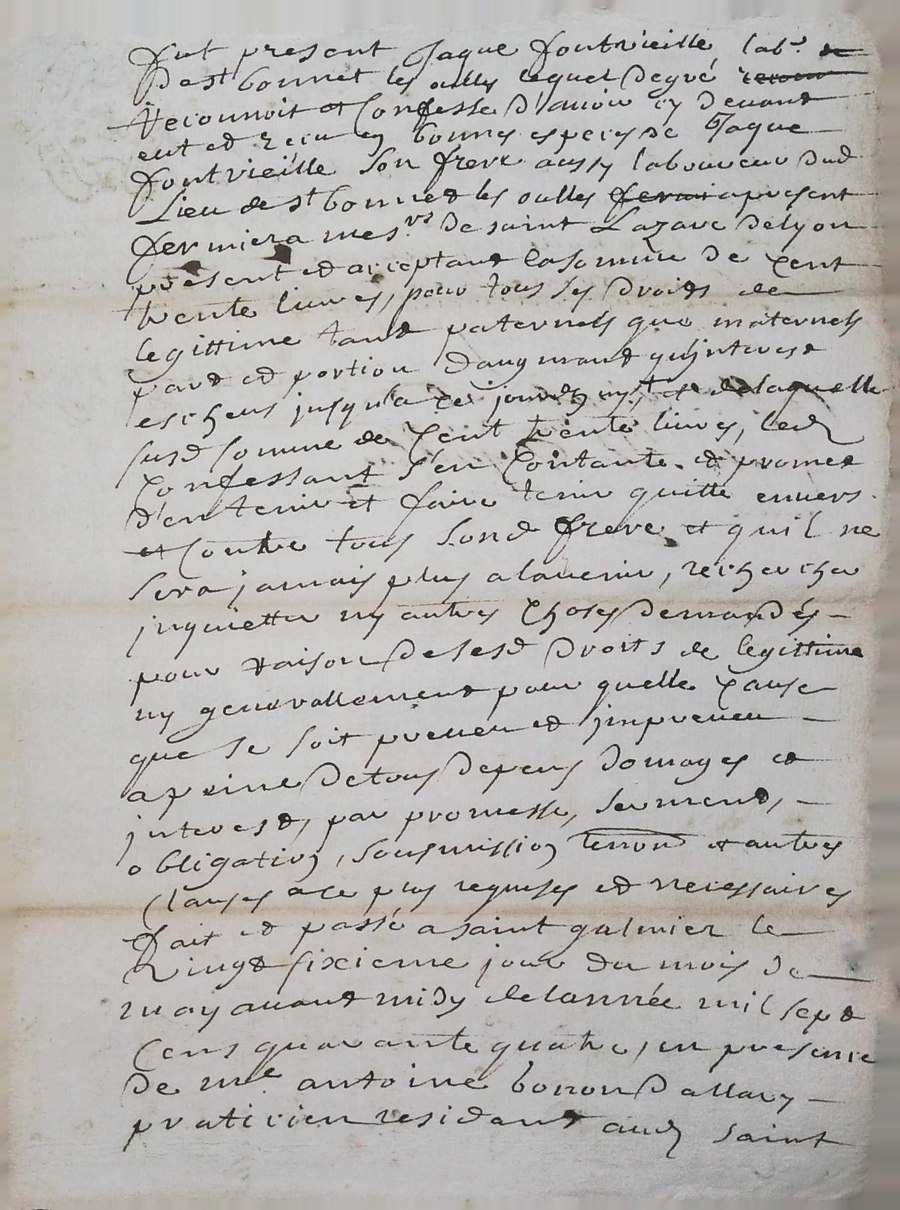 fut present Jaque fontvieille lab.r
de st bonnet les oulles lequel de gré
reconnoit et confesse d'avoir cy devant
eut et receu en bonnes especes de Jaque
fontvieille son frere aussy laboureur dud
Lieu de st bonnet les oulles fermi apresent
fermier a mes.rs de saint Lazare de lyon
present et acceptant la somme de cent
trente livres, pour tous ses droits de
legittime tant paternels que maternels
part et portion daugmant et interest
escheus jusqu'a ce jourdhuy, et de laquelle
susd somme de cent trente livres, led
confessant s'en contante et promet
d'en tenir et faire tenir quitte envers
et contre tous sond frere et quil ne
sera jamais plus a lavenir, recherché
inquietté ny autres choses demandés
pour raison de sesd droits de legittime
ny generallement pour quelle cause
que se soit preveu et impreveu
a peine de tous depens domages et
interest, par promesse, serment,
obligation, sousmission, renon et autres
clauses a ce plus requises et necessaires
fait et passé a saint galmier le
vingt sixieme jour du mois de
may avant midy de lannée mil sept
cens quarante quatre, en presence
de me antoine bonon dallary
praticien resident aud saint